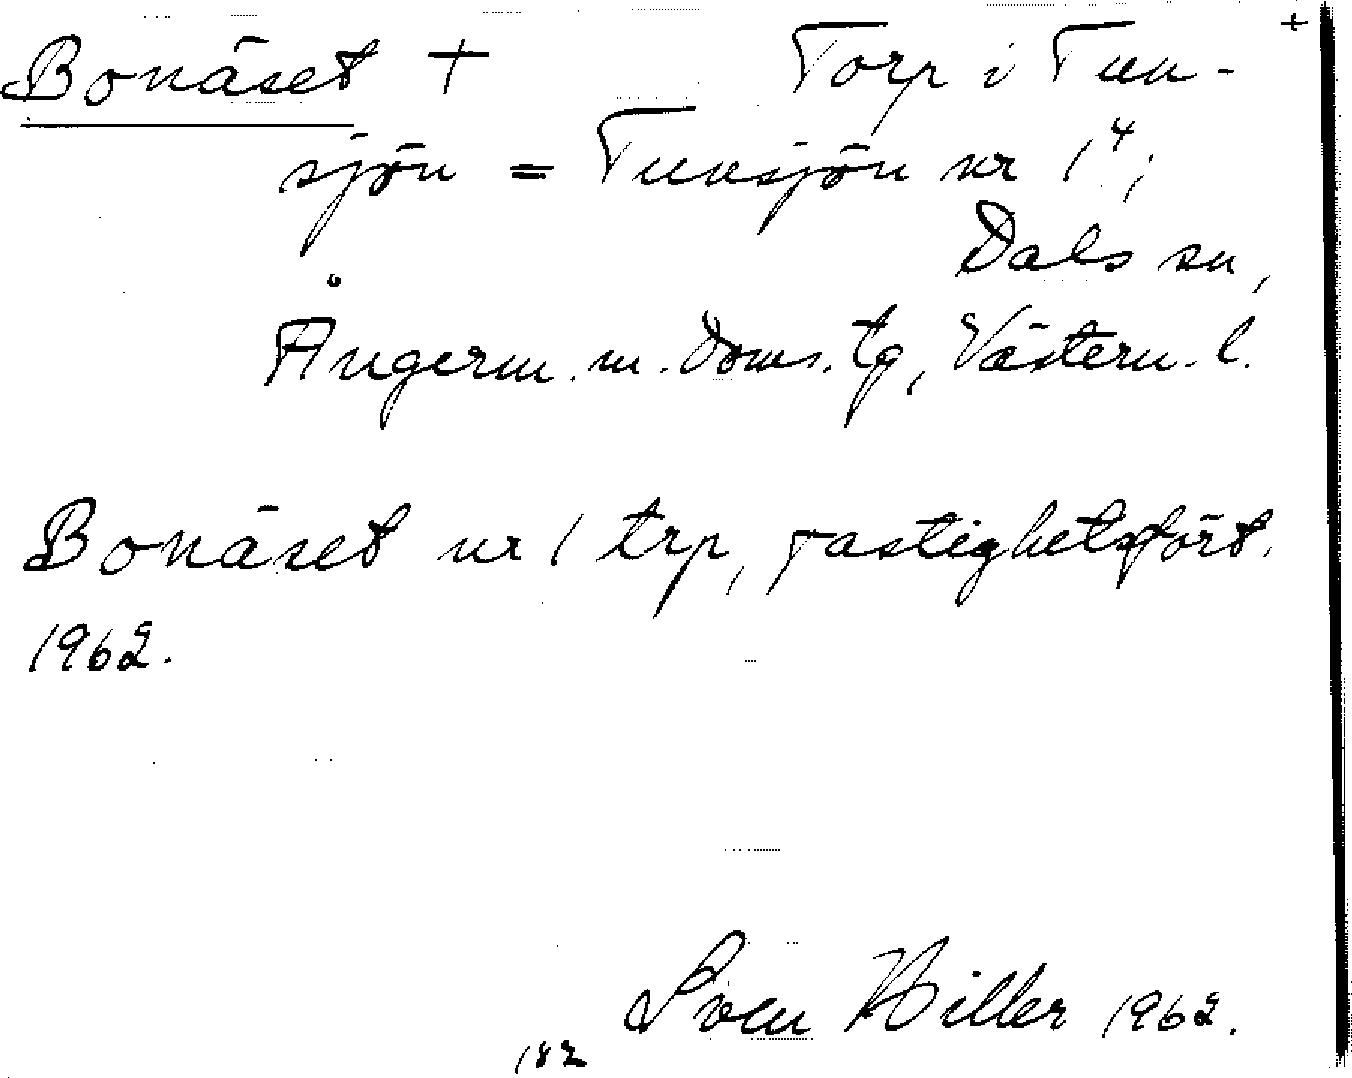 +
Bonäset + Torp i Tun-
sjön = Tunsjön nr 1⁴;
Dals sn,
Ångerm. m. doms. tg, Västern. l.
Bonäset nr 1 trp, Fastighetsfört.
1962.
Sven Hiller 1962.
182